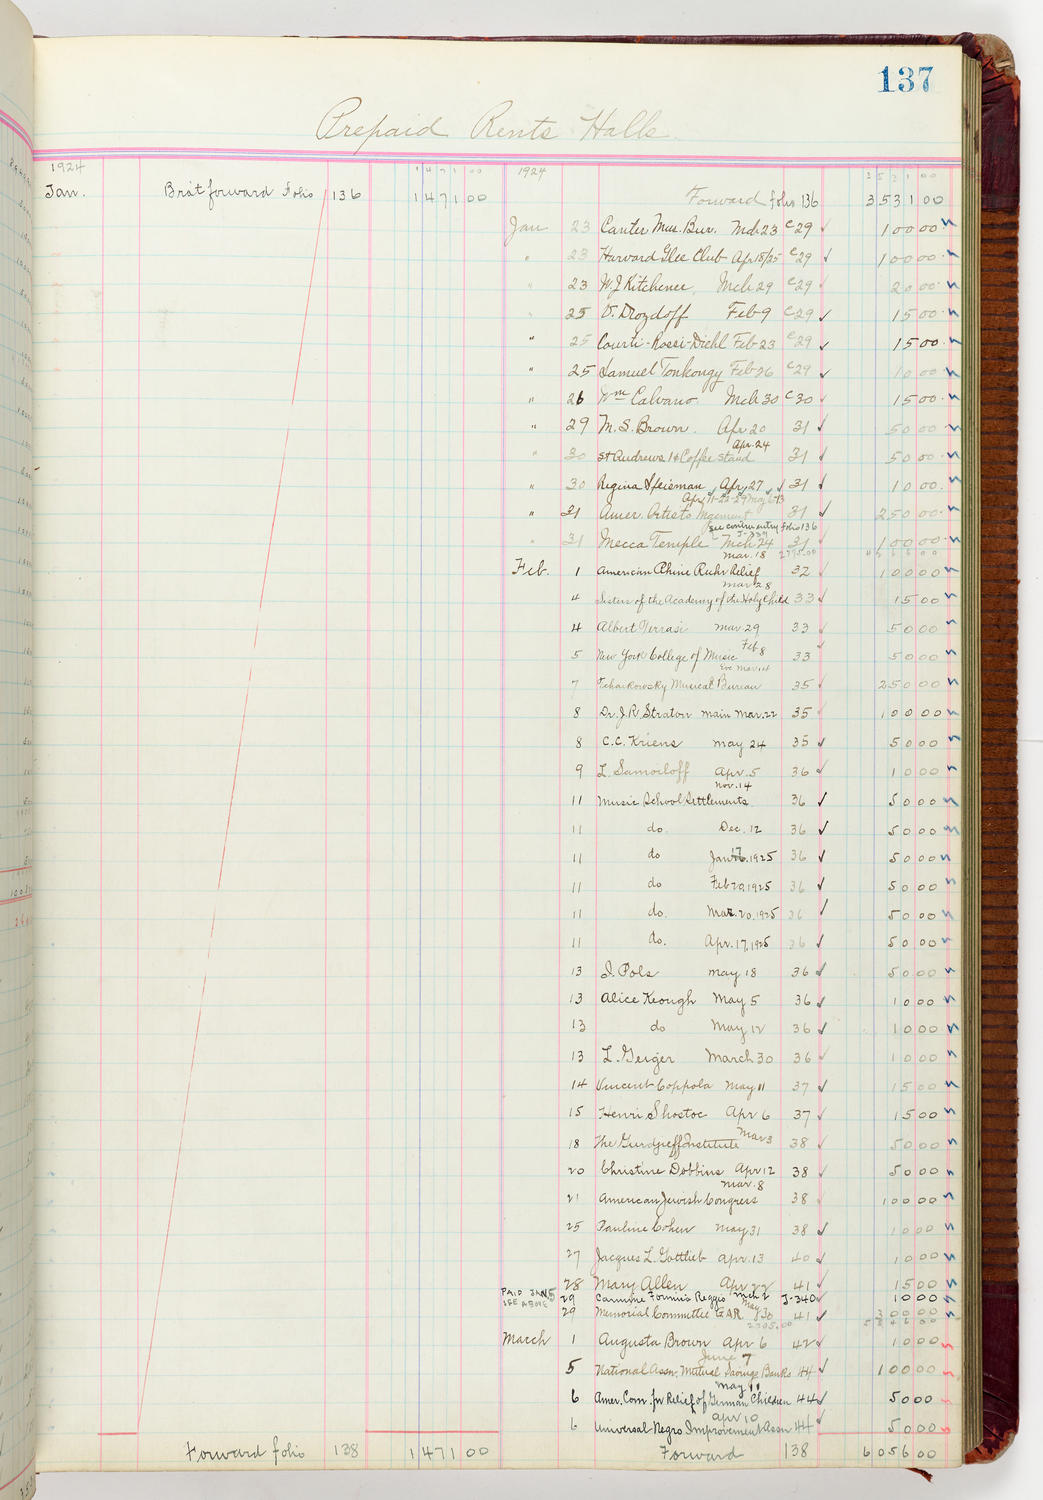 137
Prepaid Rents Halls
1924
1471 00
1924
3531 00
Jan. Bro't forward Folio 136 1471 00
Forward folio 136 3531 00
Jan 23 Canter Mus. Bur. Mch 23 C29 100 00
" 23 Harvard Glee Club Apr 18/25 C29 100 00
" 23 W.J. Kitchener, Mch 29 C29 20 00
" 25 V. Drozdoff Feb 9 C29 15 00
" 25 Courti-Rossi-Diehl Feb 23 C29 15 00
" 25 Samuel Tonkongy Feb 26 C29 10 00
" 26 Wm Calvano Mch 30 C30 15 00
" 29 M. S. Brown. Apr 20 31 50 00
Apr. 24
" 30 St Andrews 1 & Coffee Stand 31 50 00
" 30 Regina Speisman Apr 27 31 10 00
" 31 Amer. Artists Mgement 31 250 00
see contra entry folio 136
" 31 Mecca Temple Mch 24 31 100 00
Mar. 18 2795.00
Feb. 1 American Rhine Ruhr Relief 32 100 00
Mar 28
" Sisters of the Academy of the Holy Child 33 15 00
4 Albert Terrasi Mar. 29 33 50 00
Feb 8
5 New York College of Music 33 50 00
Eve Mar. 14
7 Tchaikowsky Musical Bureau 35 250 00
8 Dr. J.R. Straton main Mar. 22 35 100 00
8 C.C. Kriens May 24 35 50 00
9 L. Samoiloff Apr. 5 36 10 00
Nov. 14
11 Music School Settlements 36 50 00
11 do. Dec. 12 36 50 00
11 do Jan 16. 1925 36 50 00
11 do Feb 20, 1925 36 50 00
11 do. Mar. 20, 1925 36 50 00
11 do. Apr. 17, 1925 36 50 00
13 I. Pols May 18 36 50 00
13 Alice Keough May 5 36 10 00
13 do May 12 36 10 00
13 L. Geiger March 30 36 10 00
14 Vincent Coppola May 11 37 15 00
15 Henri Shostac Apr 6 37 15 00
18 The Gurdjieff Institute Mar 3 38 50 00
20 Christine Dobbins Apr 12 38 50 00
Mar. 8
21 American Jewish Congress 38 100 00
25 Pauline Cohen May 31 38 10 00
27 Jacques L. Gottlieb Apr. 13 40 10 00
28 Mary Allen Apr 22 41 15 00
PAID JAN 5 29 Carmine Fornnis Reggio Mch 2 J-340 10 00
SEE ABOVE
May 30
29 Memorial Committee GAR 41
2505.00
March 1 Augusta Brown Apr 6 42 10 00
June 7
5 National Assn. Mutual Savings Banks 44 100 00
May 11
6 Amer. Com. for Relief of German Children 44 50 00
Apr 10
6 Universal Negro Improvement Assn 44 50 00
Forward folio 138 1471 00
Forward 138 6056 00